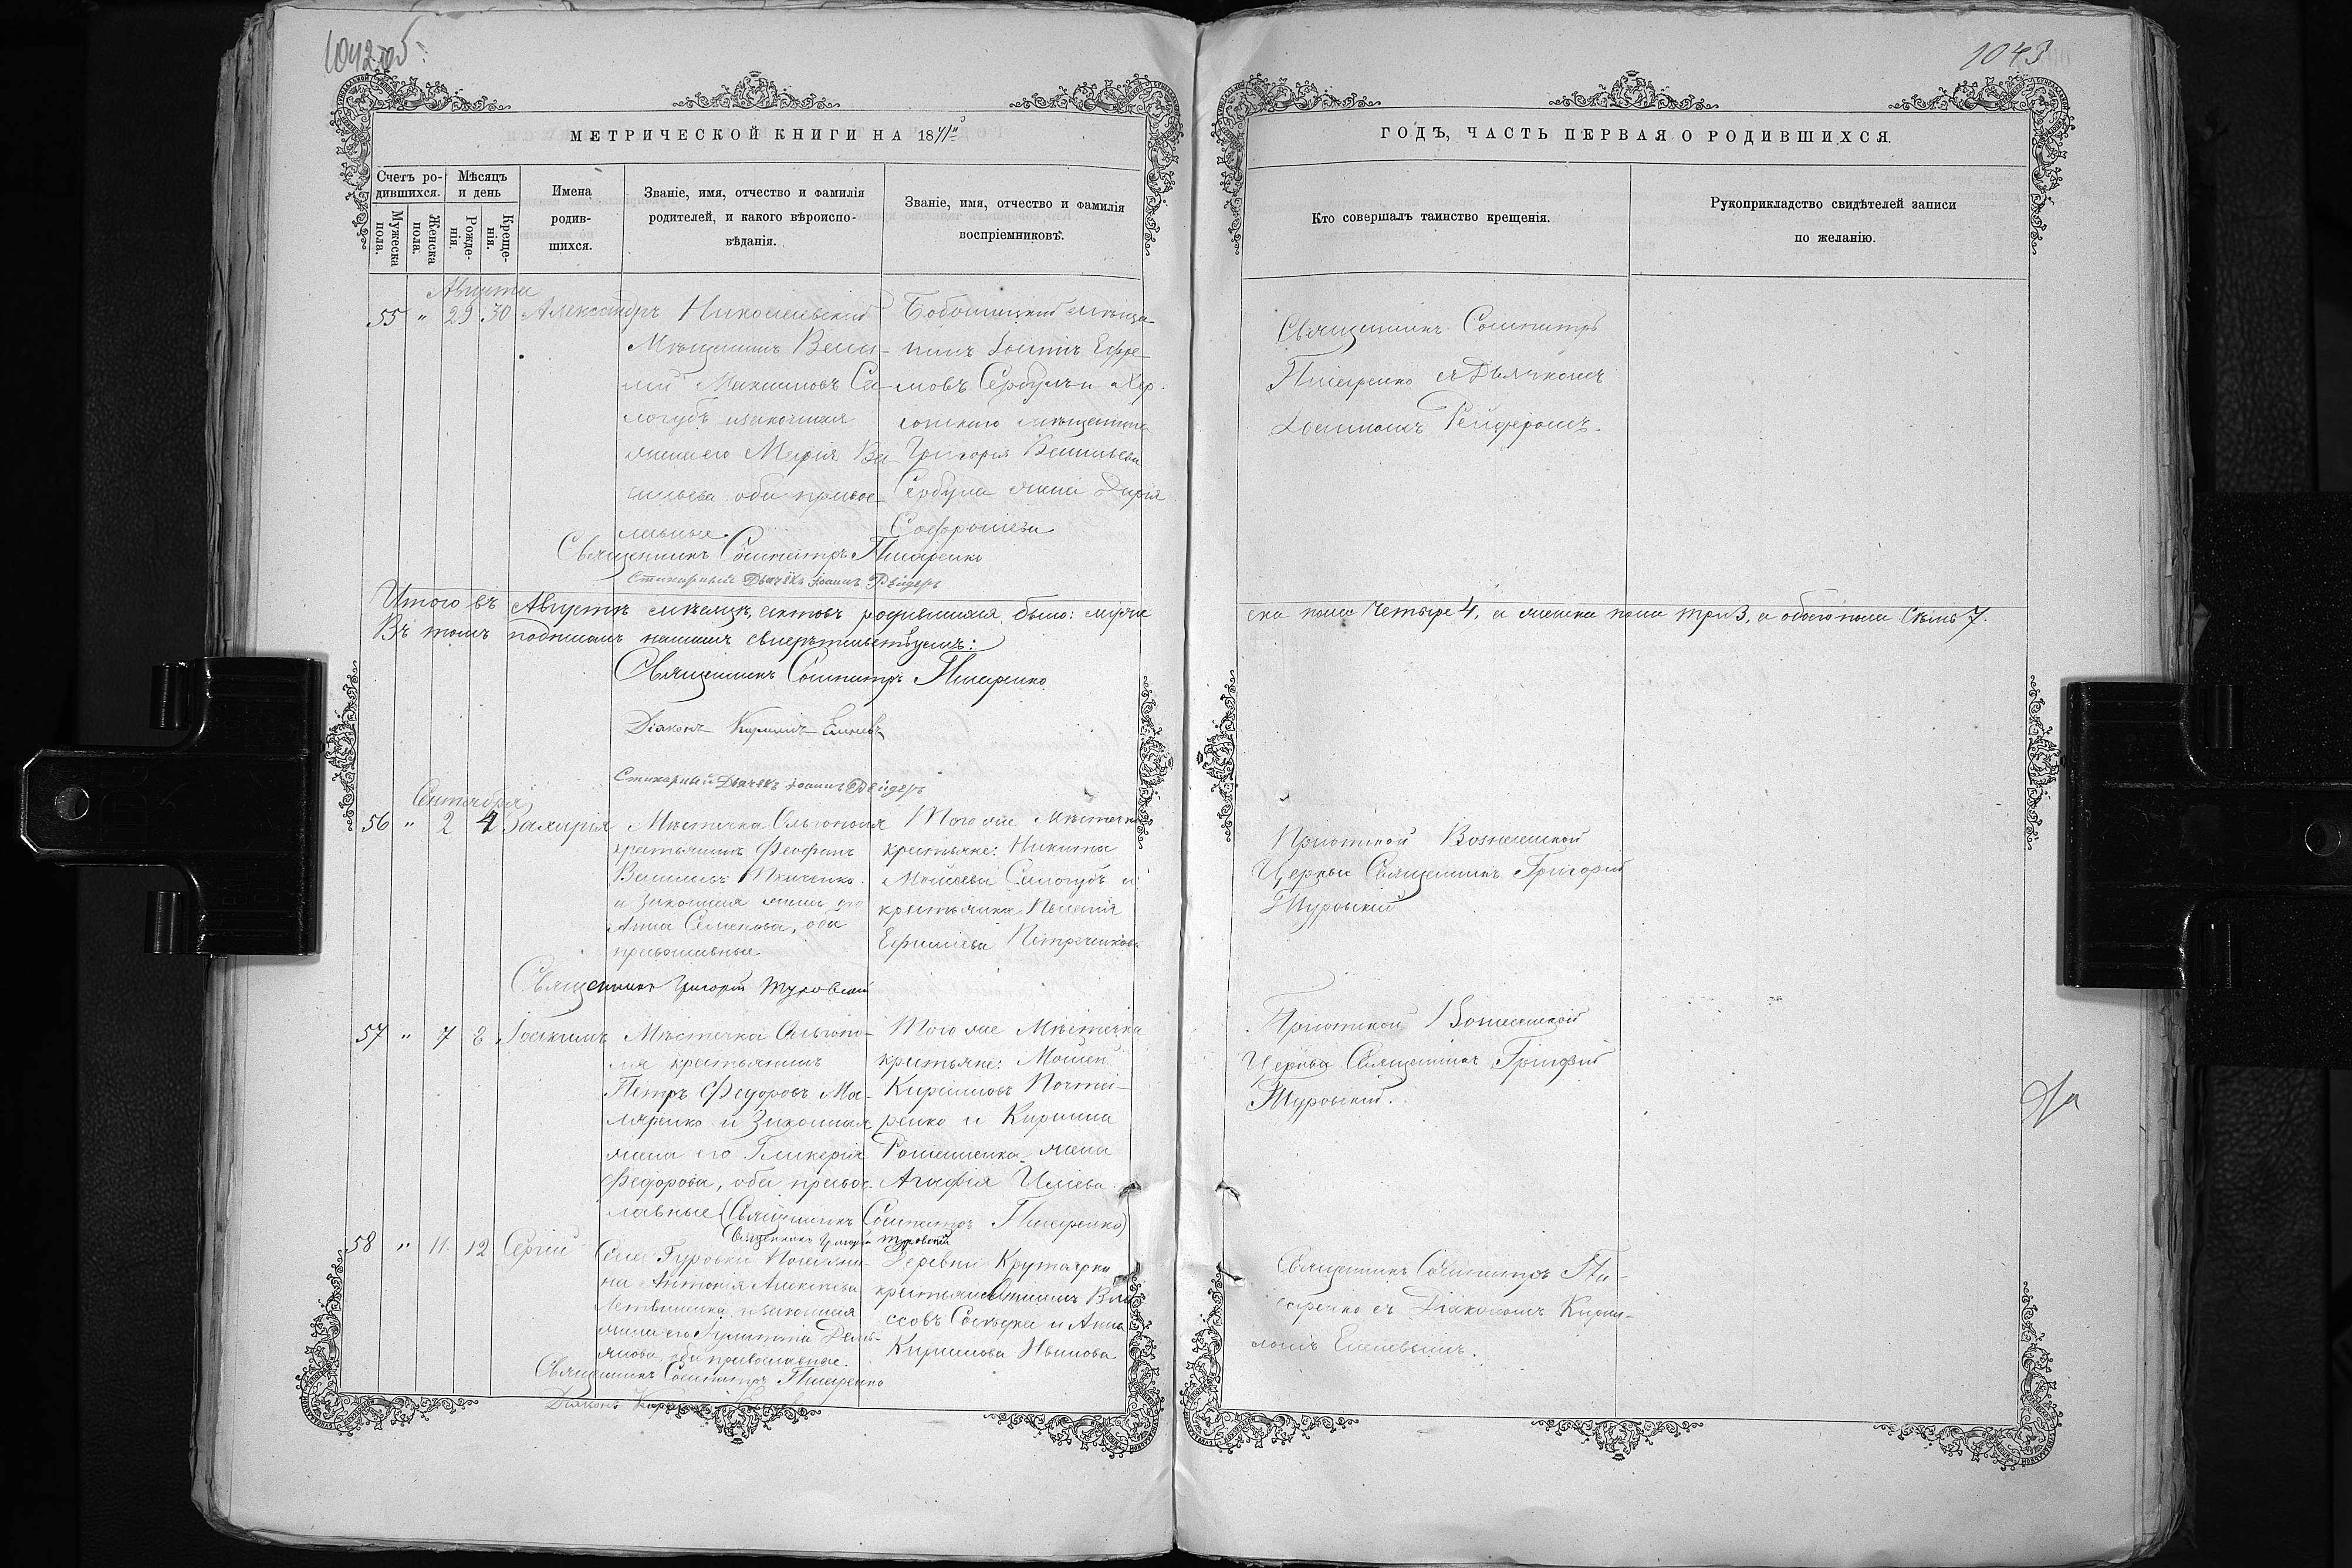 1042
1043
МЕТРИЧЕСКОЙ КНИГИ НА 1871й
ГОДЪ, ЧАСТЬ ПЕРВАЯ О РОДИВШИХСЯ.
Счетъ ро-
дившихся.
Мѣсяцъ
и день
Мужеска
пола.
Женска
пола.
Рожде-
нія.
Креще-
нія.
Имена
родив-
шихся.
Званіе, имя, отчество и фамилія
родителей, и какого вѣроиспо-
вѣданія.
Званіе, имя, отчество и фамилія
воспріемниковъ.
Кто совершалъ таинство крещенія.
Рукоприкладство свидѣтелей записи
по желанію.
Августа
55 " 29 30 Александръ
Николаевскій
Мѣщанинъ Васи-
лій Максимовъ Са-
логубъ и законная
жена его Марія Ва-
сильева оба правос-
лавные.
мѣща-
нинъ Іоаннъ Ефре-
мовъ Сербулъ и Хер-
сонскаго мѣщанина
Григорія Васильева
Сербула жена Дарія
Софроніева
Священникъ Сосипатръ
Писаренко съ Дьячкомъ
Іоанномъ Рейдеромъ.
Священникъ Сосипатръ Писаренко
Стихарный Дьячёкъ Іоаннъ Рейдеръ
Итого въ Августѣ мѣсяцѣ, актовъ родившихся было: муже
ска пола Четыре 4, а женска пола три 3, а обоего пола Семь 7.
Въ томъ подписомъ нашимъ свидѣтельствуемъ:
Священникъ Сосипатръ Писаренко
Діаконъ Кириллъ
Стихарный Дьячёкъ Іоаннъ Рейдеръ
Сентября
56 " 2 4 Захарія
Мѣстечка Ольгополя
крестьянинъ Феофанъ
Васильевъ
и законная жена его
Анна Семенова, оба
православные
Того же Мѣстечка
крестьяне: Никита
Моисеевъ Салогубъ и
крестьянка Пелагія
Ефиміева
Пріютской Вознесенской
Церкви Священникъ Григорій
Туровскій
Священникъ Григорій Туровскій
57 " 7 8 Іоакимъ
Мѣстечка Ольгопо-
ля крестьянинъ
Петръ Федоровъ Ма-
ляренко и Законная
жена его Гликерія
Федорова, оба правос-
лавные
Того же Мѣстечка
крестьяне: Моисей
Кирилловъ Почта-
ренко и Кирилла
жена
Агафія Иліева
Пріютской Вознесенской
Церкви Священникъ Григорій
Туровскій.
(Священникъ Сосипатръ Писаренко)
Священникъ Григорій Туровскій
58 " 11. 12 Сергій
Села Гуровки
Антонія Алексѣева
и законная
жена его Демь-
янова, оба православные.
Деревни Крутоярки
крестьянинъ
и Анна
Кириллова Иванова
Священникъ Сосипатръ Пи-
саренко съ Діакономъ Кирил-
ломъ
Священникъ Сосипатръ Писаренко
Діаконъ Кириллъ